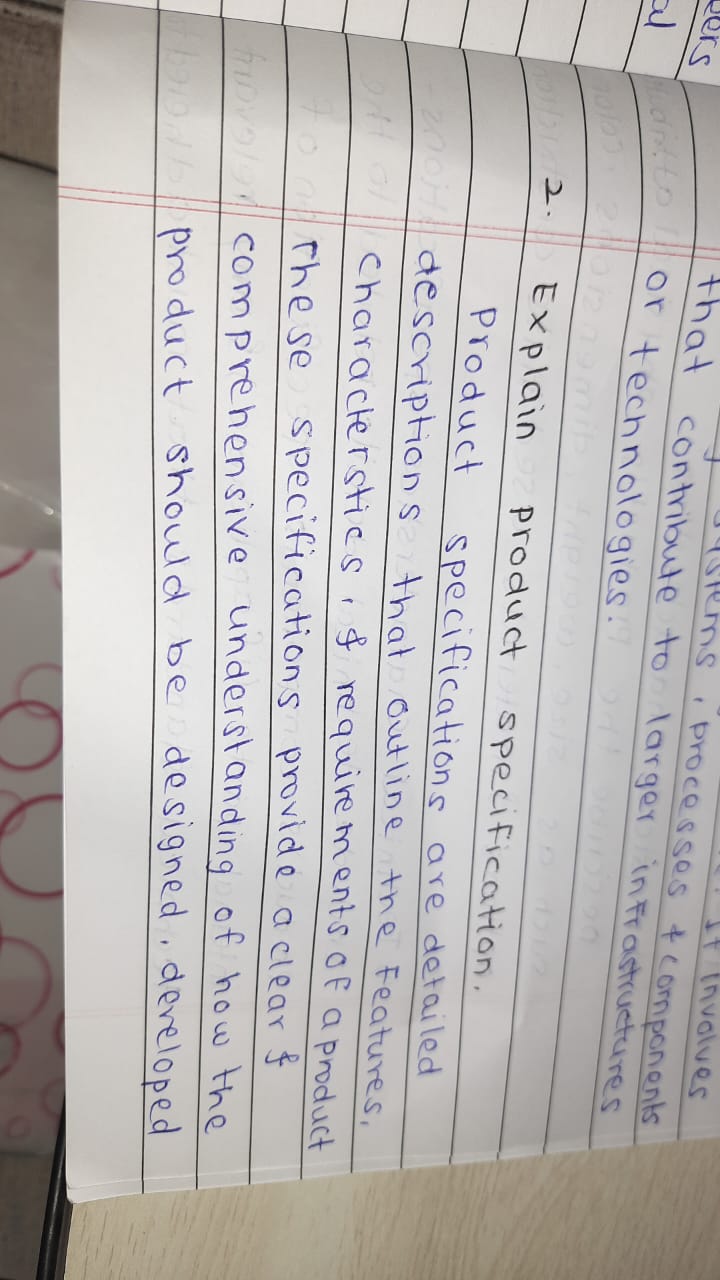 eers
al
It involves
systems, processes & components
that contribute to larger infrastructures
or technologies.
2. Explain product specification.
Product specifications are detailed
descriptions that outline the features,
characterstics, & requirements of a product
These specifications provide a clear &
comprehensive understanding of how the
product should be designed, developed